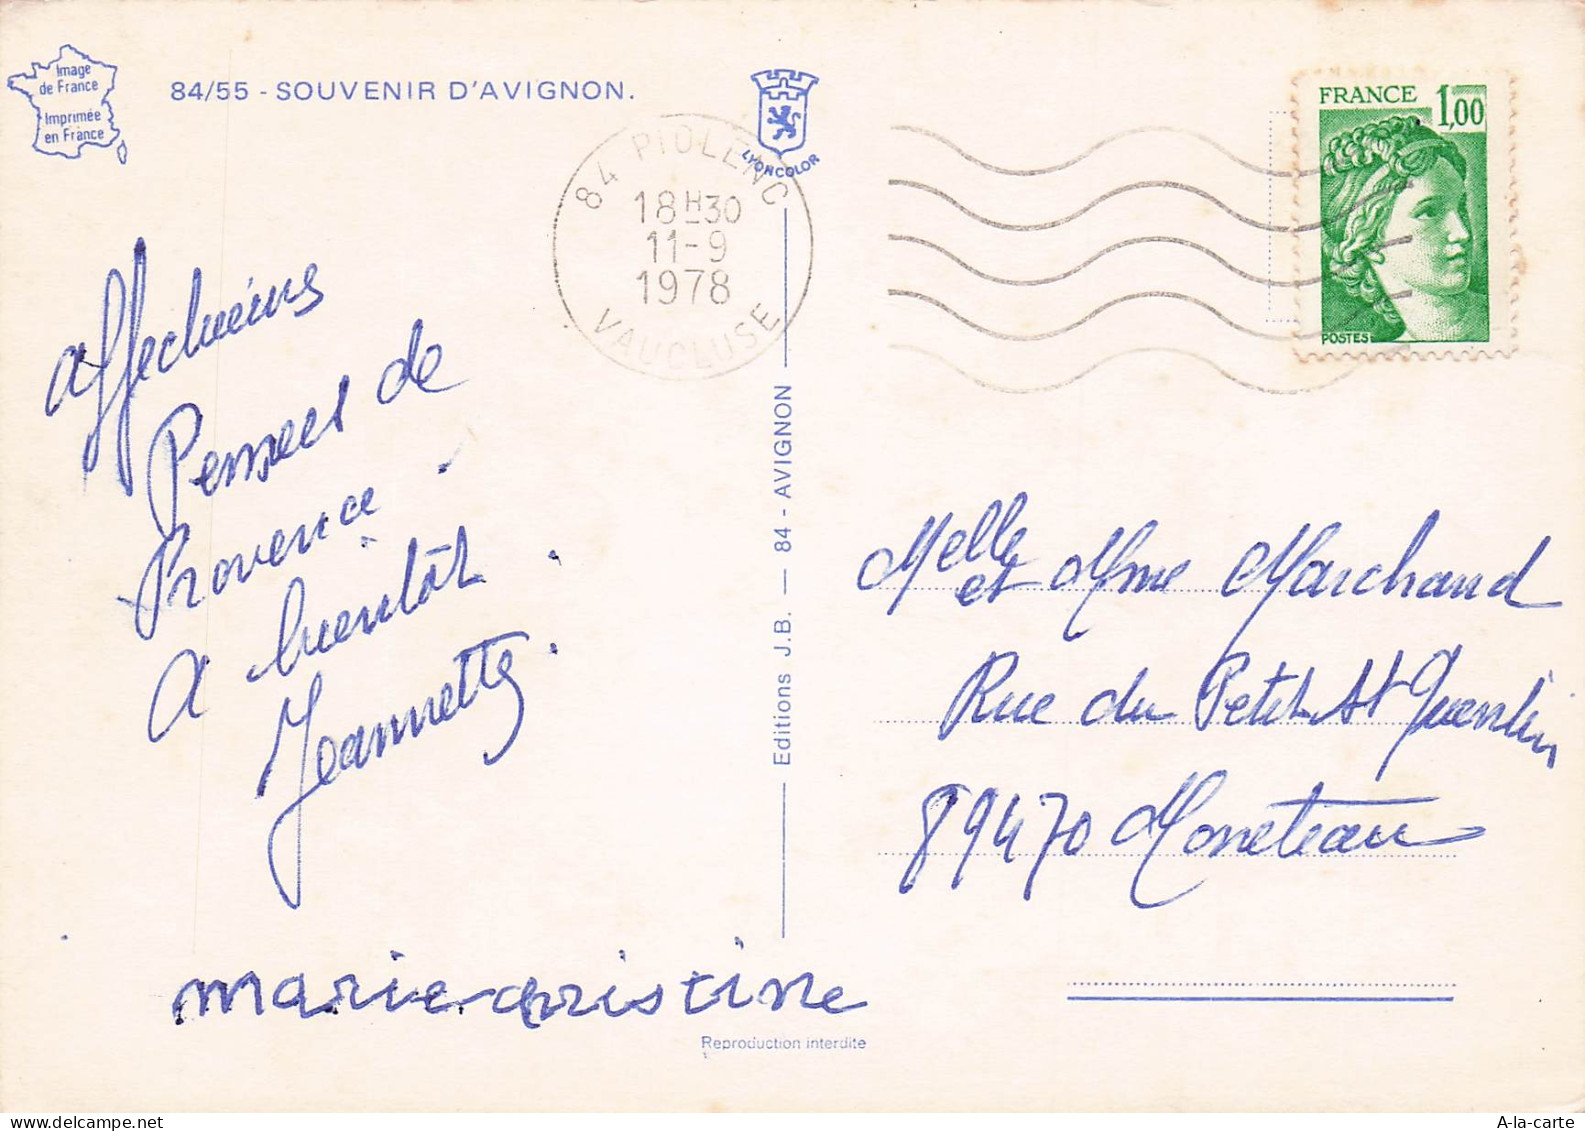 Image
de France
Imprimée
en France
84/55 - SOUVENIR D'AVIGNON.
LYONCOLOR
84 PIOLENC
18H30
11-9
1978
VAUCLUSE
FRANCE 1,00
POSTES
affectueuses
Pensees de
Provence.
a bientôt
Jeannette.
marie christine
Editions J.B. — 84 - AVIGNON
Melle
et Mme Marchand
Rue du Petit St Quentin
89470 Moneteau
Reproduction interdite
A-la-carte